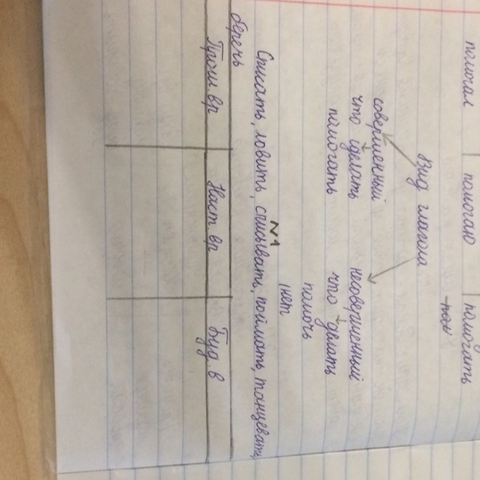 помогал помогаю помогать
Вид глагола
совершенный несовершенный
что сделать что делать
помогать помочь
нет
№1
Списать, ловить, списывать, поймать, танцевать,
беречь
Прош. вр Наст. вр Буд. в